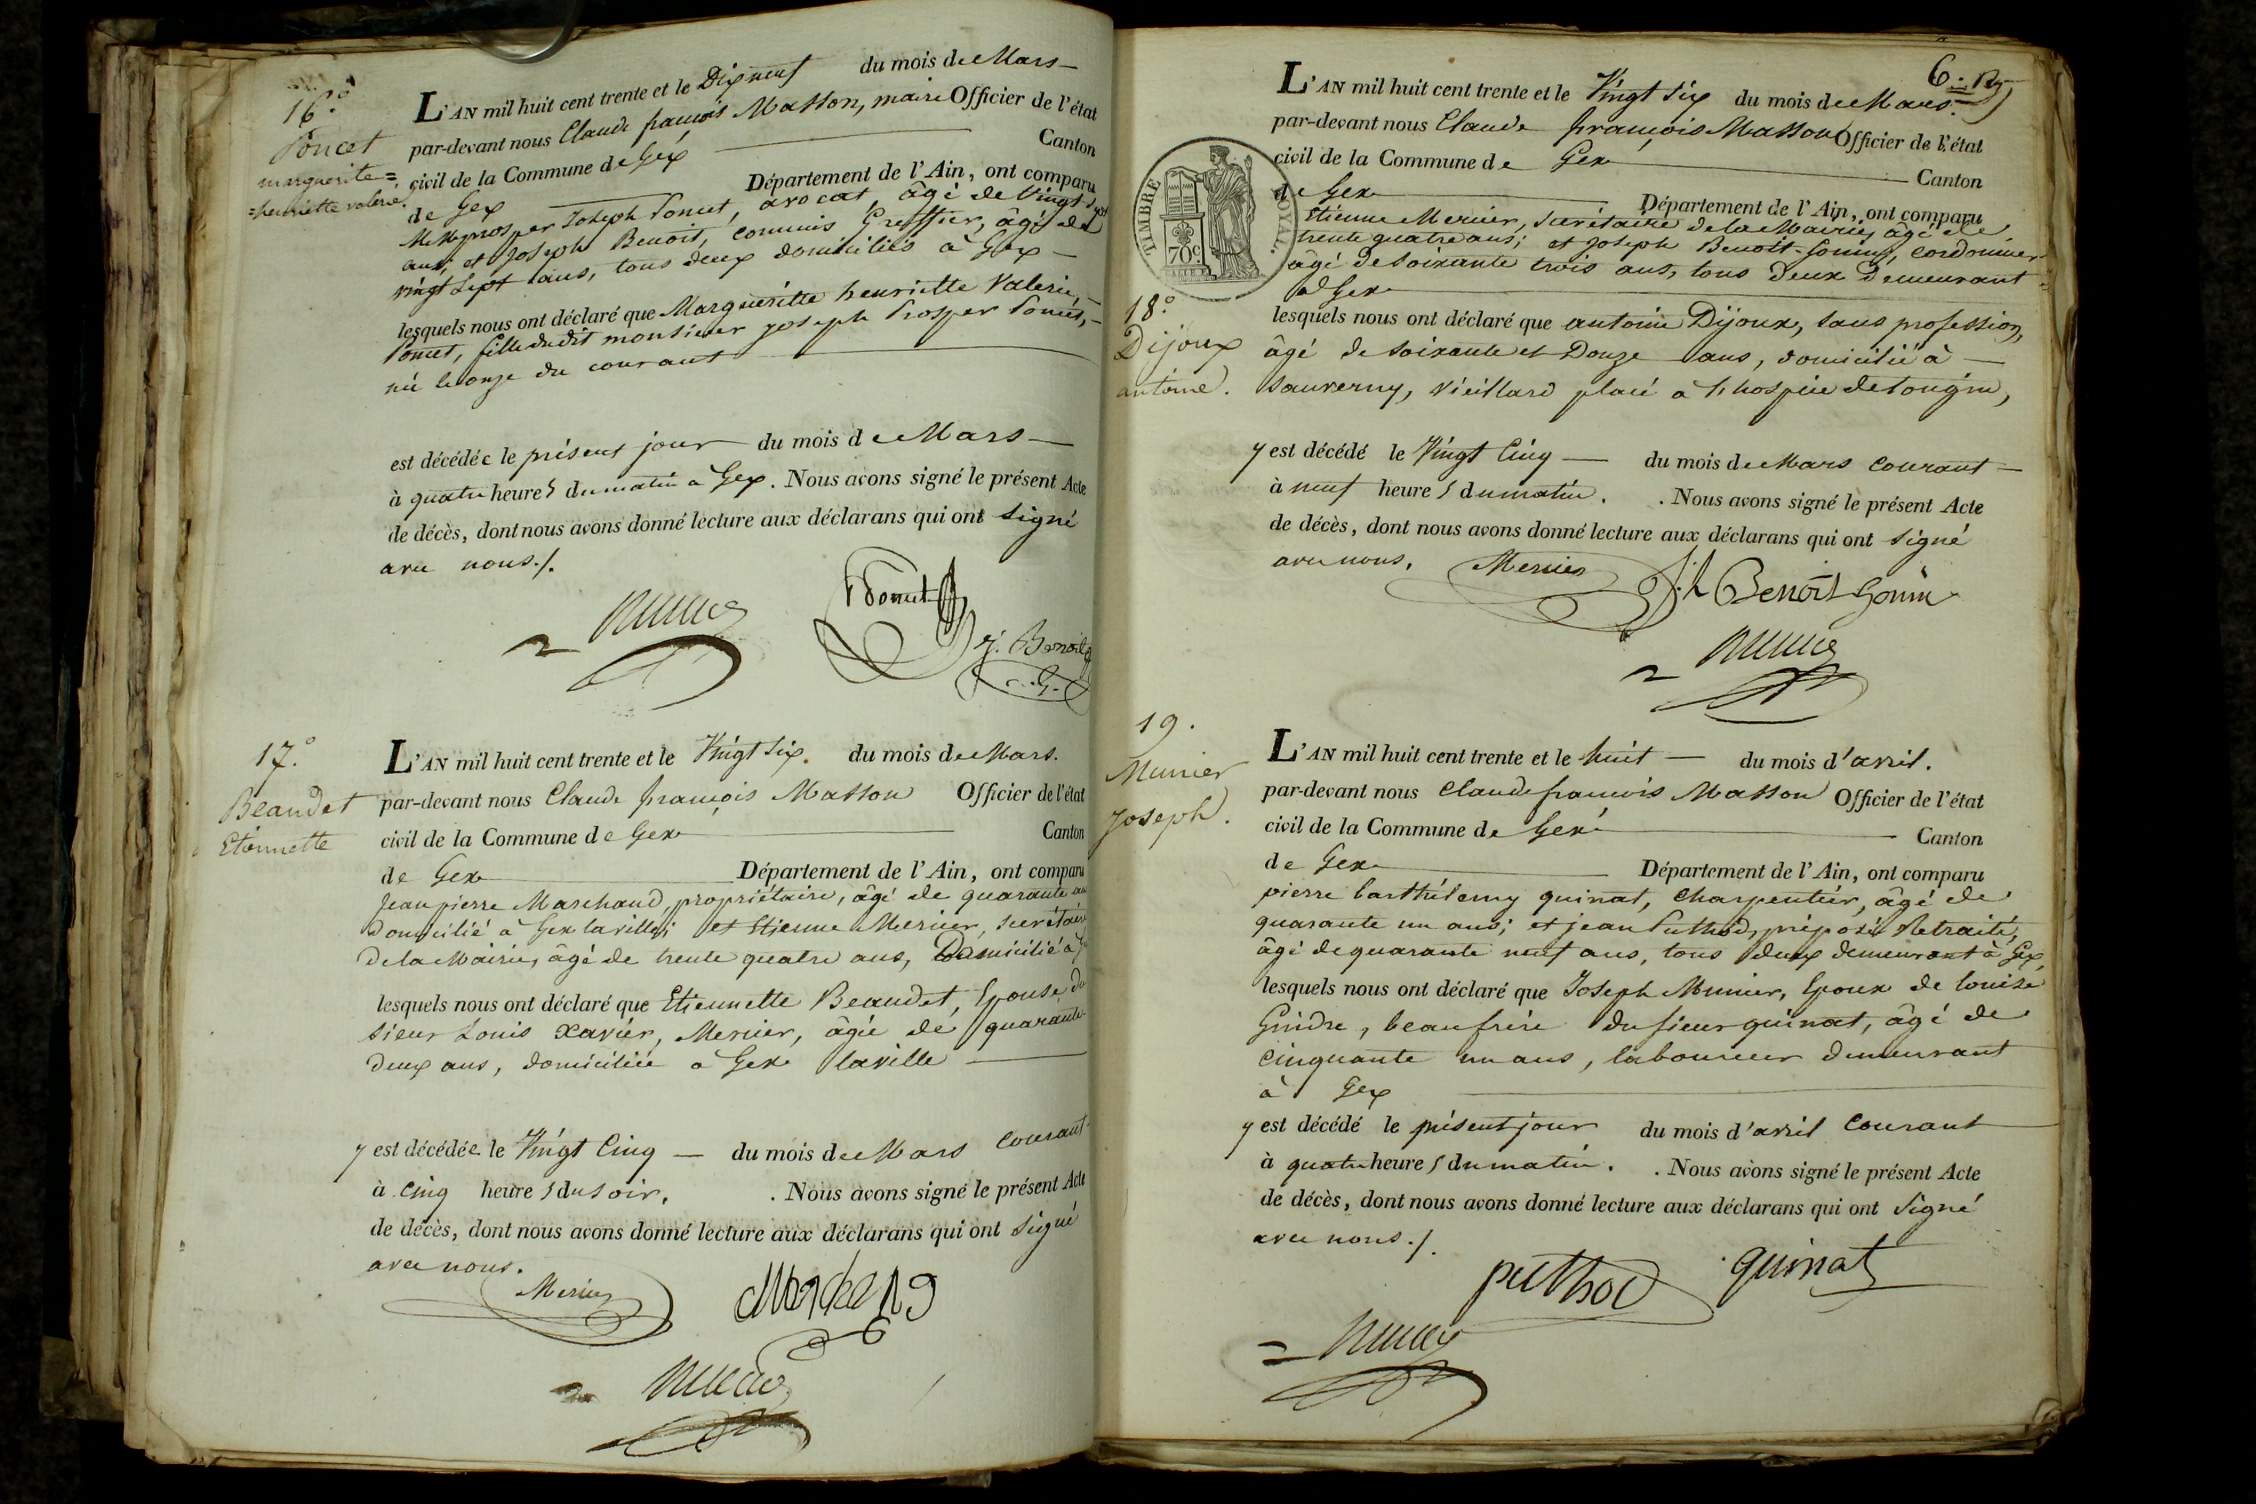 16.°
Poncet
marguerite=
=henriette valerie.
L'AN mil huit cent trente et le Dix neuf du mois de Mars
par-devant nous Claude françois Masson, maire Officier de l'état
civil de la Commune de Gex Canton
de Gex Département de l'Ain, ont comparu
prosper Joseph Poncet, avocat, âgé de Vingt sept
ans, et Joseph Benoit, commis Greffier, âgé de
vingt Sept ans, tous deux domiciliés à Gex
lesquels nous ont déclaré que Margueritte henriette Valerie,
Poncet, fille dudit monsieur joseph Prosper Poncet,
née le onze du courant
est décédée le présent jour du mois de Mars
à quatre heures du matin à Gex. Nous avons signé le présent Acte
de décès, dont nous avons donné lecture aux déclarans qui ont signé
avec nous./.
Poncet
j. Benoit
17.°
Beaudet
Etiennette
L'AN mil huit cent trente et le Vingt six. du mois de Mars.
par-devant nous Claude françois Masson Officier de l'état
civil de la Commune de Gex Canton
de Gex Département de l'Ain, ont comparu
Jean pierre Marchand, propriétaire, âgé de quarante ans
Domicilié à Gex la ville; et Etienne Mercier, secrétaire
De la Mairie, âgé de trente quatre ans, Domicilié à
lesquels nous ont déclaré que Etiennette Beaudet, Epouse du
sieur Louis xavier, Mercier, âgée de quarante
deux ans, domiciliée à Gex la ville
y est décédée le Vingt Cinq du mois de Mars courant
à cinq heures du soir. . Nous avons signé le présent Acte
de décès, dont nous avons donné lecture aux déclarans qui ont signé
avec nous.
Mercier
Marchand
6.
TIMBRE ROYAL.
70c
18.°
Dijoux
antoine.
L'AN mil huit cent trente et le Vingt six du mois de Mars.
par-devant nous Claude françois Masson Officier de l'état
civil de la Commune de Gex Canton
de Gex Département de l'Ain, ont comparu
Etienne Mercier, secrétaire de la Mairie, âgé de
trente quatre ans; et Joseph Benoît-Gonin, cordonnier
âgé de soixante trois ans, tous deux Demeurant
à Gex
lesquels nous ont déclaré que antoine Dijoux, sans profession,
âgé de soixante et Douze ans, domicilié à
sauverny, vieillard placé à l'hospice de tougin,
y est décédé le Vingt Cinq du mois de Mars courant
à neuf heures du matin. . Nous avons signé le présent Acte
de décès, dont nous avons donné lecture aux déclarans qui ont signé
avec nous.
Mercier
Benoît Gonin
19.
Munier
Joseph.
L'AN mil huit cent trente et le huit du mois d'avril.
par-devant nous Claude francois Masson Officier de l'état
civil de la Commune de Gex Canton
de Gex Département de l'Ain, ont comparu
pierre barthélemy quinat, Charpentier, âgé de
quarante un ans; et jean Puthod, préposé Retraité,
âgé de quarante neuf ans, tous deux demeurant à Gex,
lesquels nous ont déclaré que Joseph Munier, Epoux de louise
Guidre, beaufrère du sieur quinat, âgé de
cinquante un ans, laboureur demeurant
à Gex
y est décédé le présent jour du mois d'avril courant
à quatre heures du matin. . Nous avons signé le présent Acte
de décès, dont nous avons donné lecture aux déclarans qui ont signé
avec nous./.
puthod
quinat